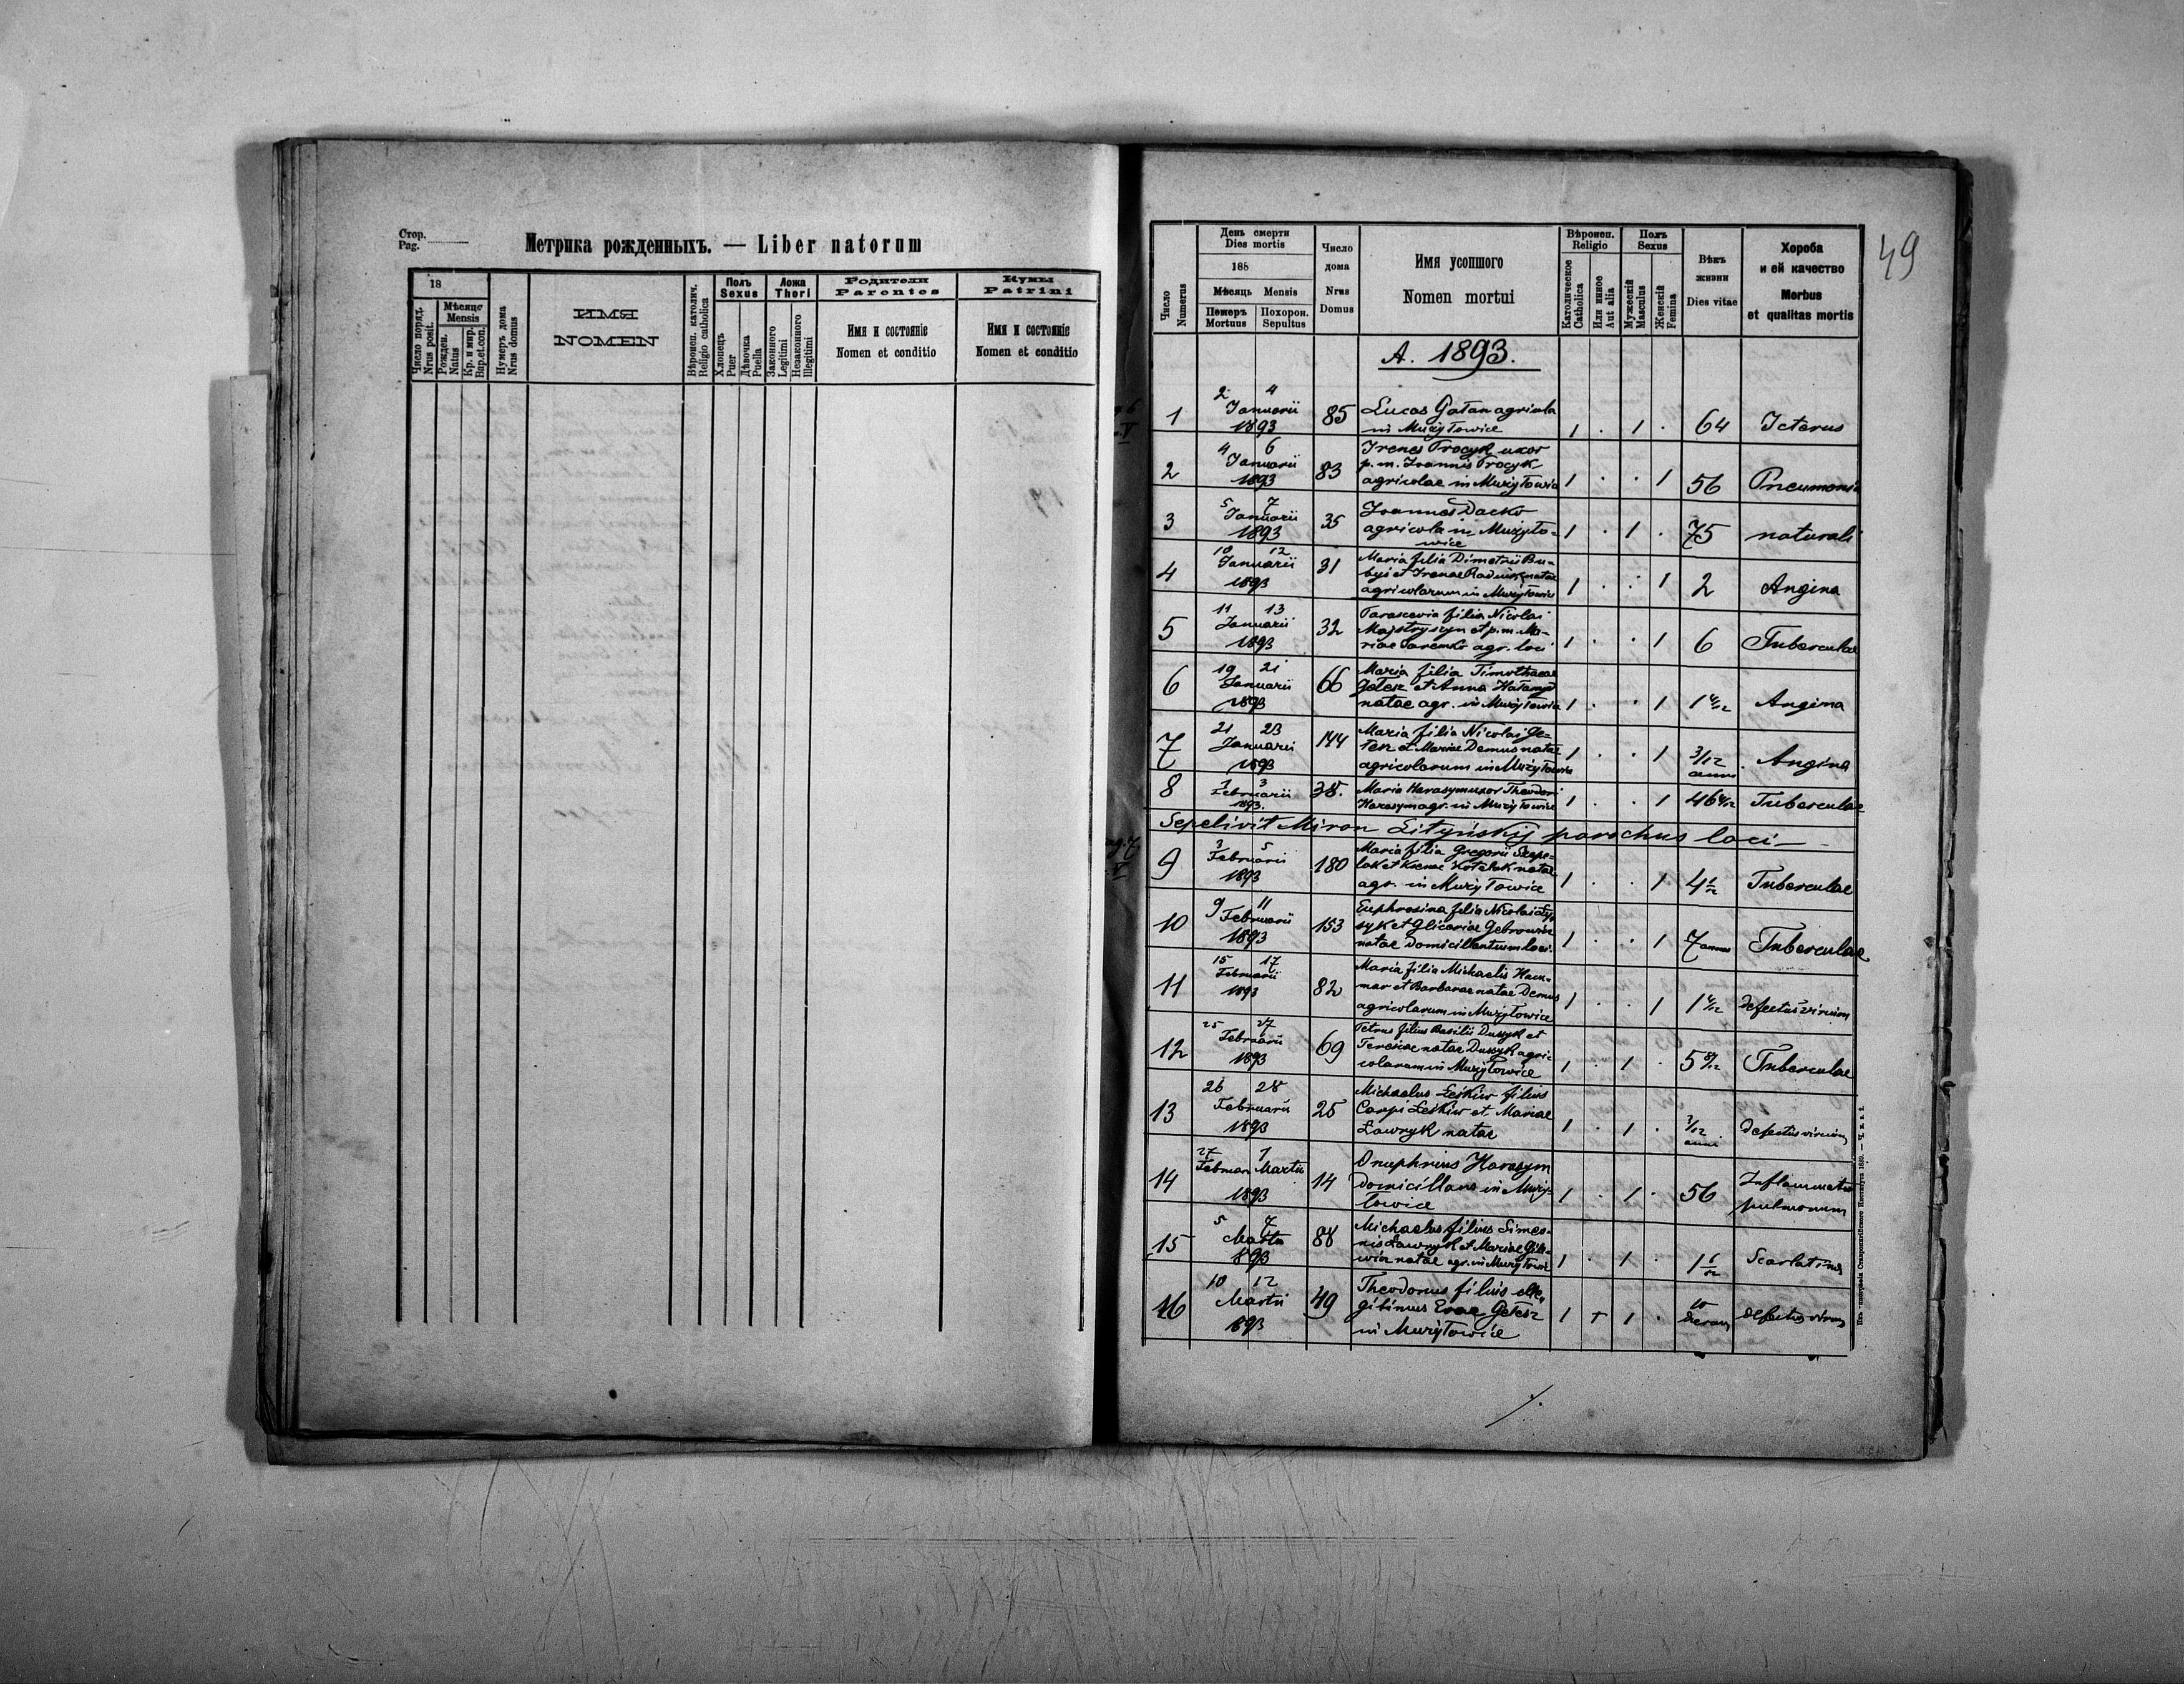 Стор.
Pag.
Метрика рожденныхъ. — Liber natorum
18
Число поряд.
Nrus posit.
Мѣсяцѣ
Mensis
Рожден.
Natus
Кр. и мир.
Bap. et con.
Нумеръ дома
Nrus domus
ИМЯ
NOMEN
Вѣроисп. католич.
Religio catholica
Полъ
Sexus
Хлопецъ
Puer
Дѣвочка
Puella
Ложа
Thori
Законного
Legitimi
Незаконного
Illegitimi
Родители
Parentes
Имя и состояніе
Nomen et conditio
Кумы
Patrini
Имя и состояніе
Nomen et conditio
49
Число
Numerus
День смерти
Dies mortis
188
Мѣсяць Mensis
Померъ
Mortuus
Похорон.
Sepultus
Число
дома
Nrus
Domus
Имя усопшого
Nomen mortui
Вѣроисп.
Religio
Католическое
Catholica
Или инное
Aut alia
Полъ
Sexus
Мужескій
Masculus
Женскій
Femina
Вѣкъ
жизни
Dies vitae
Хороба
и ей качество
Morbus
et qualitas mortis
A. 1893.
1 2 4 Januarii 1893 85 Lucas Gałan agricola
in Mużyłowice 1 . 1 . 64 Icterus
2 4 6 Januarii 1893 83 Irenes Trocyk uxor
p. m. Joannis Trocyk
agricolae in Mużyłowice 1 . . 1 56 Pneumonia
3 5 7 Januarii 1893 35 Joannes Dacko
agricola in Mużyło=
wice 1 . 1 . 75 naturali
4 10 12 Januarii 1893 31 Maria filia Dimetrii Bu-
byś et Irenae natae
agricolarum in Mużyłowice 1 . . 1 2 Angina
5 11 13 Januarii 1893 32 Parascevia filia Nicolai
Majstryszyn et p. m. Ma-
riae agr. loci 1 . . 1 6 Tuberculae
6 19 21 Januarii 1893 66 Maria filia Timothaeae
Gełesz et Anna
natae agr. in Mużyłowice 1 . . 1 1 4/12 Angina
7 21 23 Januarii 1893 144 Maria filia Nicolai Ge-
łesz et Mariae Demus natae
agricolarum in Mużyłowice 1 . . 1 3/12 anni Angina
8 1 3 Februarii 1893. 38. Maria Harasym uxor Theodori
Harasym agr. in Mużyłowice 1 . . 1 46 Tuberculae
Sepelivit Miron Lityńskij parochus loci —
9 3 5 Februarii 1893 180 Maria filia Gregorii
et Kseniae natae
agr. in Mużyłowice 1 . . 1 4 1/12 Tuberculae
10 9 11 Februarii 1893 153 Euphrosina filia Nicolai
et Glicariae
natae domicillantium loci. 1 . . 1 7 annus Tuberculae
11 15 17 Februarii 1893 82 Maria filia Michaelis
et Barbarae natae Demus
agricolarum in Mużyłowice 1 . . 1 1 4/12 defectus virium
12 25 27 Februarii 1893 69 Petrus filius Basilii Duszyk et
Teresiae natae Duszyk agri-
colarum in Mużyłowice 1 . 1 . 5 Tuberculae
13 26 28 Februarii 1893 25 Michaelus Leśkiw filius
Carpi Leśkiw et Mariae
Ławryk natae 1 . 1 . anni defectus virium
14 27 Februar 1 Martii 1893 14 Onuphrius Harasym
domicillans in Muży-
łowice 1 . 1 . 56 Inflammatio
pulmonum
15 5 7 Martii 1893 88 Michaelus filius Simeo-
nis Ławryk et Mariae
natae agr. in Mużyłowice 1 . 1 . 1 1/12 Scarlatina
16 10 12 Martii 1893 49 Theodorus filius ille-
gitimus Evae Gełesz
in Mużyłowice 1 + 1 . 10 dierum defectus virium